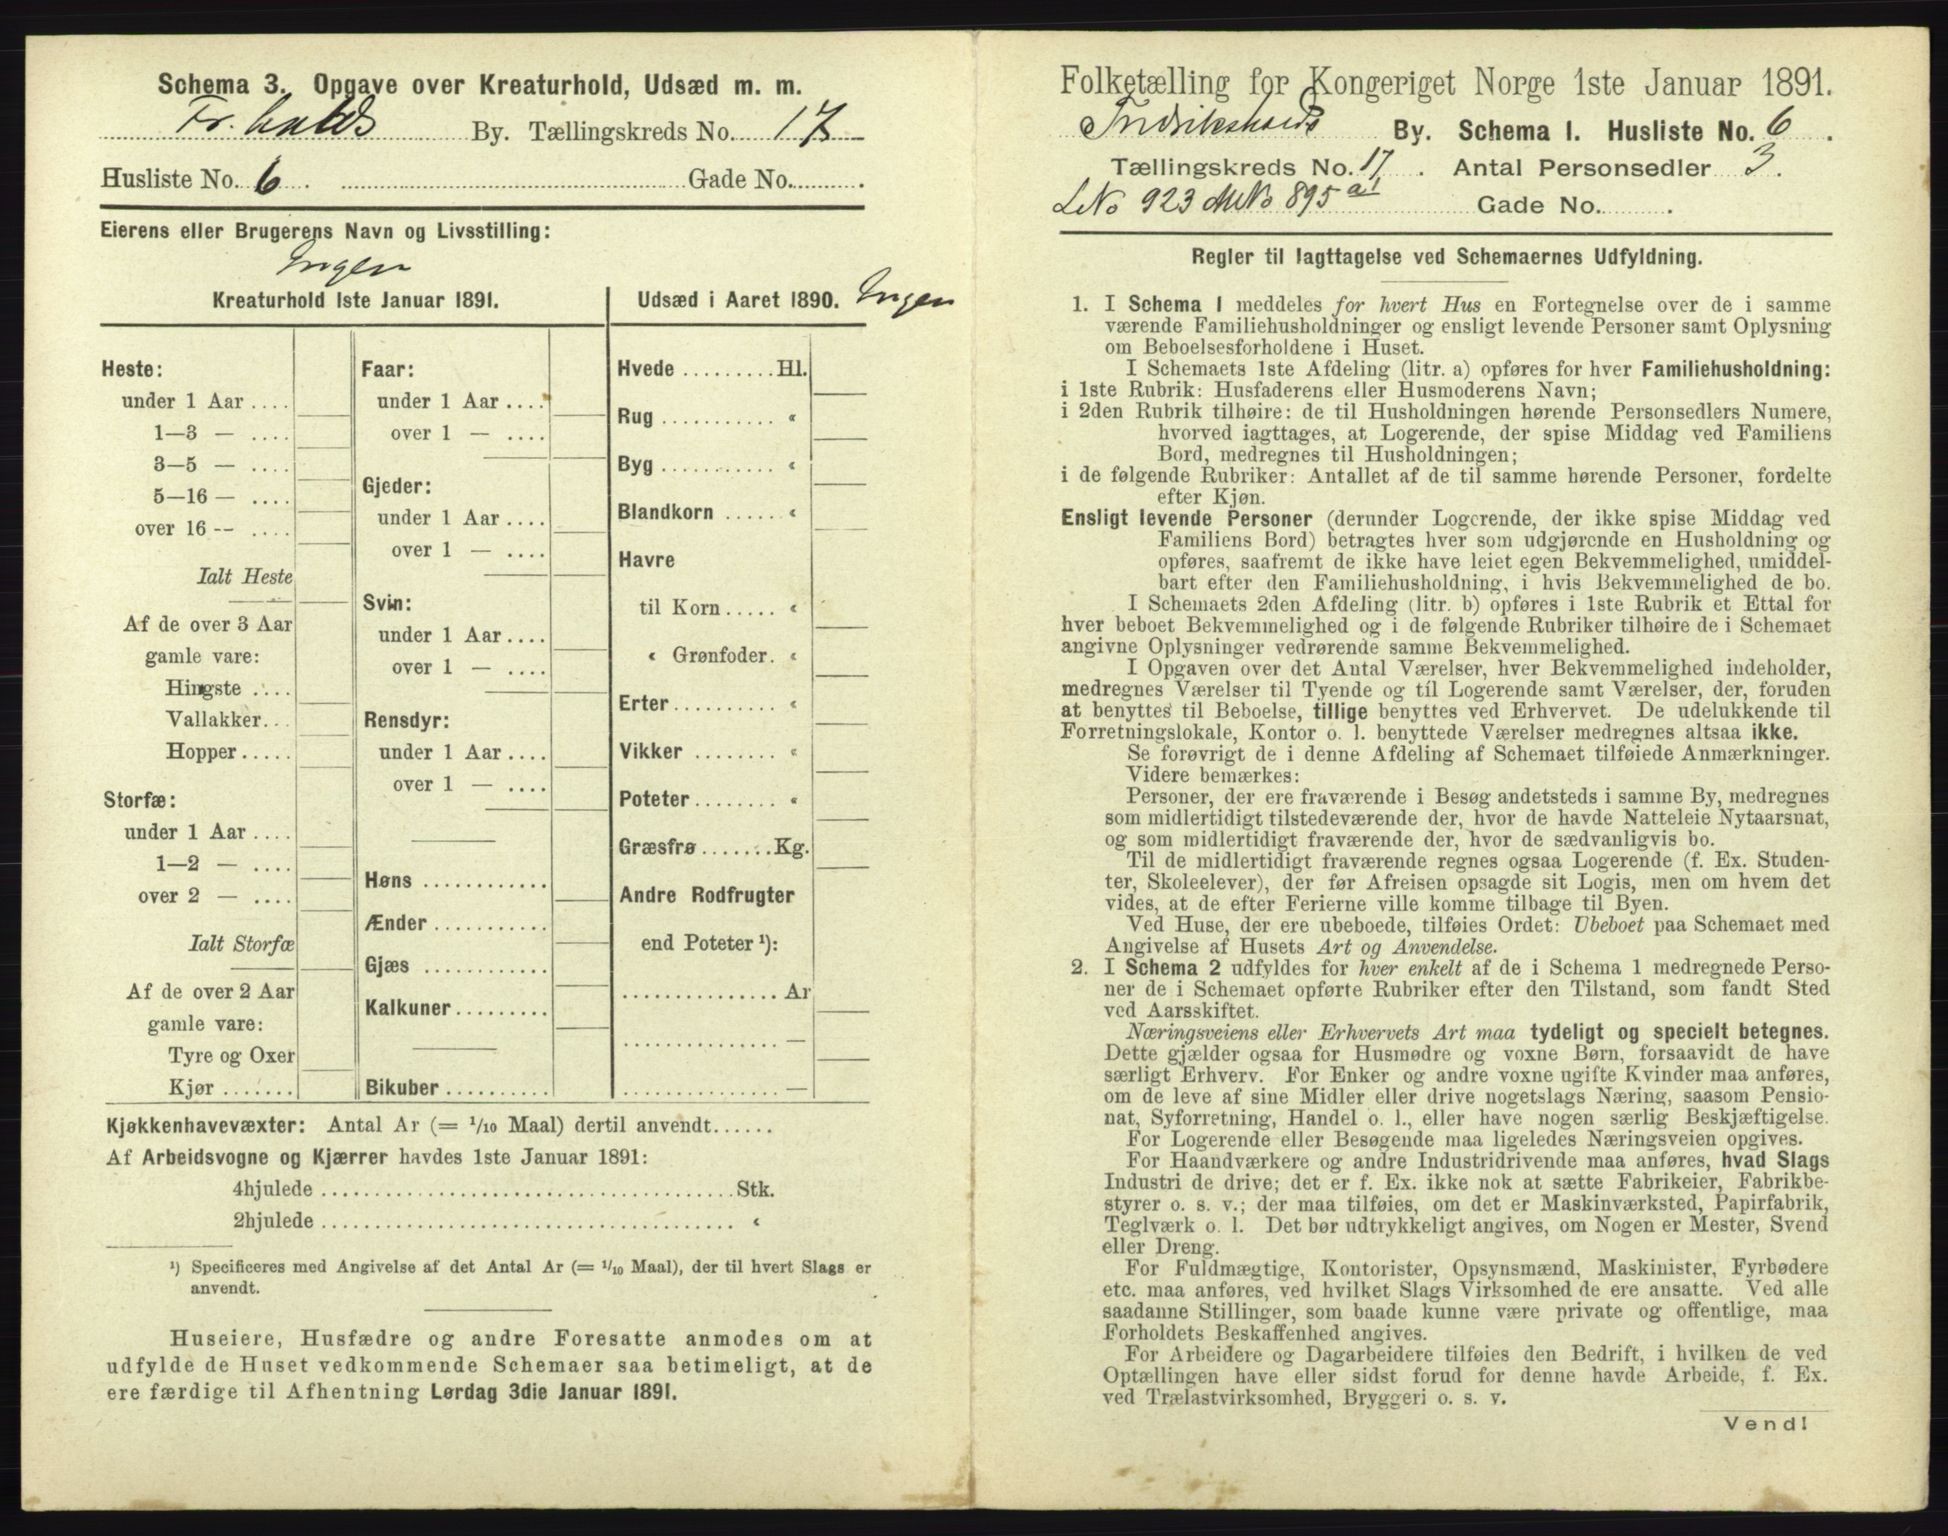 Schema 3. Opgave over Kreaturhold, Udsæd m. m.
Fr.halds By. Tællingskreds No. 17
Husliste No. 6 . Gade No. .
Eierens eller Brugerens Navn og Livsstilling:
Ingen
Kreaturhold 1ste Januar 1891.
Heste:
under 1 Aar ....
1—3 — ....
3—5 — ....
5—16 — ....
over 16 -- ....
Ialt Heste
Af de over 3 Aar
gamle vare:
Hingste ....
Vallakker...
Hopper.....
Storfæ:
under 1 Aar ....
1—2 — ....
over 2 — ....
Ialt Storfæ
Af de over 2 Aar
gamle vare:
Tyre og Oxer
Kjør .......
Faar:
under 1 Aar ....
over 1 — ....
Gjeder:
under 1 Aar ....
over 1 — ....
Svin:
under 1 Aar ....
over 1 — ....
Rensdyr:
under 1 Aar ....
over 1 — ....
Høns ............
Ænder ...........
Gjæs ............
Kalkuner.........
Bikuber ..........
Udsæd i Aaret 1890. Ingen
Hvede .........Hl.
Rug ........... «
Byg ........... «
Blandkorn ...... «
Havre
til Korn ..... «
« Grønfoder. «
Erter.......... «
Vikker ........ «
Poteter........ «
Græsfrø.......Kg.
Andre Rodfrugter
end Poteter ¹):
...............Ar
............... —
............... —
Kjøkkenhavevæxter: Antal Ar (= 1/10 Maal) dertil anvendt......
Af Arbeidsvogne og Kjærrer havdes 1ste Januar 1891:
4hjulede .......................................Stk.
2hjulede ....................................... «
¹) Specificeres med Angivelse af det Antal Ar (= 1/10 Maal), der til hvert Slags er
anvendt.
Huseiere, Husfædre og andre Foresatte anmodes om at
udfylde de Huset vedkommende Schemaer saa betimeligt, at de
ere færdige til Afhentning Lørdag 3die Januar 1891.
Folketælling for Kongeriget Norge 1ste Januar 1891.
Fredrikshalds By. Schema I. Husliste No. 6 .
Tællingskreds No. 17 . Antal Personsedler 3 .
LNo 923 MNo 895 a1 Gade No. .
Regler til Iagttagelse ved Schemaernes Udfyldning.
1. I Schema 1 meddeles for hvert Hus en Fortegnelse over de i samme
værende Familiehusholdninger og ensligt levende Personer samt Oplysning
om Beboelsesforholdene i Huset.
I Schemaets 1ste Afdeling (litr. a) opføres for hver Familiehusholdning:
i 1ste Rubrik: Husfaderens eller Husmoderens Navn;
i 2den Rubrik tilhøire: de til Husholdningen hørende Personsedlers Numere,
hvorved iagttages, at Logerende, der spise Middag ved Familiens
Bord, medregnes til Husholdningen;
i de følgende Rubriker: Antallet af de til samme hørende Personer, fordelte
efter Kjøn.
Ensligt levende Personer (derunder Logerende, der ikke spise Middag ved
Familiens Bord) betragtes hver som udgjørende en Husholdning og
opføres, saafremt de ikke have leiet egen Bekvemmelighed, umiddel-
bart efter den Familiehusholdning, i hvis Bekvemmelighed de bo.
I Schemaets 2den Afdeling (litr. b) opføres i 1ste Rubrik et Ettal for
hver beboet Bekvemmelighed og i de følgende Rubriker tilhøire de i Schemaet
angivne Oplysninger vedrørende samme Bekvemmelighed.
I Opgaven over det Antal Værelser, hver Bekvemmelighed indeholder,
medregnes Værelser til Tyende og til Logerende samt Værelser, der, foruden
at benyttes til Beboelse, tillige benyttes ved Erhvervet. De udelukkende til
Forretningslokale, Kontor o. l. benyttede Værelser medregnes altsaa ikke.
Se forøvrigt de i denne Afdeling af Schemaet tilføiede Anmærkninger.
Videre bemærkes:
Personer, der ere fraværende i Besøg andetsteds i samme By, medregnes
som midlertidigt tilstedeværende der, hvor de havde Natteleie Nytaarsnat,
og som midlertidigt fraværende der, hvor de sædvanligvis bo.
Til de midlertidigt fraværende regnes ogsaa Logerende (f. Ex. Studen-
ter, Skoleelever), der før Afreisen opsagde sit Logis, men om hvem det
vides, at de efter Ferierne ville komme tilbage til Byen.
Ved Huse, der ere ubeboede, tilføies Ordet: Ubeboet paa Schemaet med
Angivelse af Husets Art og Anvendelse.
2. I Schema 2 udfyldes for hver enkelt af de i Schema 1 medregnede Perso-
ner de i Schemaet opførte Rubriker efter den Tilstand, som fandt Sted
ved Aarsskiftet.
Næringsveiens eller Erhvervets Art maa tydeligt og specielt betegnes.
Dette gjælder ogsaa for Husmødre og voxne Børn, forsaavidt de have
særligt Erhverv. For Enker og andre voxne ugifte Kvinder maa anføres,
om de leve af sine Midler eller drive nogetslags Næring, saasom Pensio-
nat, Syforretning, Handel o. l., eller have nogen særlig Beskjæftigelse.
For Logerende eller Besøgende maa ligeledes Næringsveien opgives.
For Haandværkere og andre Industridrivende maa anføres, hvad Slags
Industri de drive; det er f. Ex. ikke nok at sætte Fabrikeier, Fabrikbe-
styrer o. s. v.; der maa tilføies, om det er Maskinværksted, Papirfabrik,
Teglværk o. l. Det bør udtrykkeligt angives, om Nogen er Mester, Svend
eller Dreng.
For Fuldmægtige, Kontorister, Opsynsmænd, Maskinister, Fyrbødere
etc. maa anføres, ved hvilket Slags Virksomhed de ere ansatte. Ved alle
saadanne Stillinger, som baade kunne være private og offentlige, maa
Forholdets Beskaffenhed angives.
For Arbeidere og Dagarbeidere tilføies den Bedrift, i hvilken de ved
Optællingen have eller sidst forud for denne havde Arbeide, f. Ex.
ved Trælastvirksomhed, Bryggeri o. s. v.
Vend!